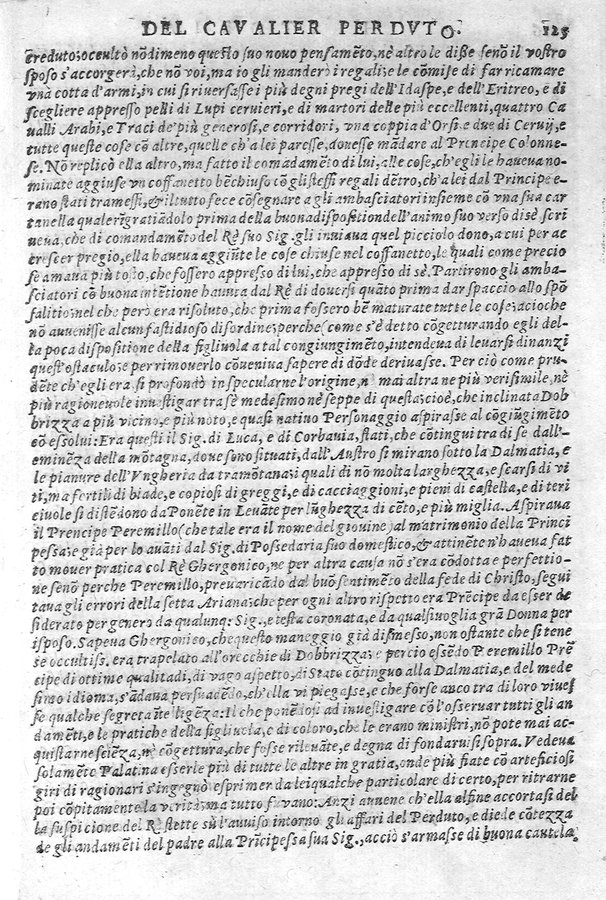 DEL CAVALIER PERDVTO. 125
creduto; occultò nõdimeno questo suo novo pensamẽto, nè altro le diße senõ il vostro
sposo s'accorgerà, che nõ voi, ma io gli manderò i regali; e le cõmise di far ricamare
vna cotta d'armi, in cui si riversasse i più degni pregi dell'Idaspe, e dell'Eritreo, e di
scegliere appresso pelli di Lupi cervieri, e di martori delle più eccellenti, quattro Ca
ualli Arabi, e Traci de'più generosi, e corridori, vna coppia d'Orsi, e due di Ceruij, e
tutte queste cose cõ altre, quelle ch'a lei paresse, douesse mãdare al Principe Colonne-
se. Nõ replicò ella altro, ma fatto il comãdamẽto di lui, alle cose, ch'egli le haueua no-
minate aggiuse vn coffanetto bẽchiuso cõ glistessi regali dẽtro, ch'a lei dal Principe e-
rano stati tramessi, & iltutto fece cõsegnare a gli ambasciatori insieme cõ vna sua car
ta nella quale rigratiãdolo prima della buona dispositione dell'animo suo verso di sè scri
ueua, che di comandamẽto del Rè suo Sig. gli inuiaua quel picciolo dono, a cui per ac
crescer pregio, ella haueua aggiũte le cose chiuse nel coffanetto, le quali come precio
se amaua più tosto, che fossero appresso di lui, che appresso di sè. Partirono gli amba-
sciatori cõ buona intẽtione hauuta dal Rè di douersi quãto prima dar spaccio allo spõ
salitio; nel che però era risoluto, che prima fossero bẽ maturate tutte le cose; acioche
nõ auuenisse alcun fastidioso disordine; perche (come s'è detto cõgetturando egli del-
la poca dispositione della figliuola a tal congiungimẽto, intendeua di leuarsi dinanzi
quest'ostaculo; e per rimouerlo cõueniua sapere di dõde deriuasse. Per ciò come pru-
dẽte ch'egli era si profondò in specularne l'origine, nè mai altra ne più verisimile, nè
più ragioneuole inuestigar tra sè medesimo nè seppe di questa; cioè, che inclinata Dob
brizza a più vicino, e più noto, e quasi natiuo Personaggio aspirasse al cõgiũgimẽto
cõ essolui: Era questi il Sig. di Luca, e di Corbauia, stati, che cõtingui tra di se dall'e-
eminẽza della mõtagna, doue sono situati, dall'Austro si mirano sotto la Dalmatia, e
le pianure dell'Vngheria da tramõtana: i quali di nõ molta larghezza, e scarsi di vi
ti, ma fertili di biade, e copiosi di greggi, e di cacciaggioni, e pieni di castella, e di teri
ciuole si distẽdono da Ponẽte in Leuãte per lũghezza di cẽto, e più miglia. Aspiraua
il Prencipe Peremillo (che tale era il nome del giouine) al matrimonio della Princi
pessa; e già per lo auãti dal Sig. di Possedaria suo domestico, & attinẽte n'haueua fat
to mouer pratica col Rè Ghergonico, ne per altra causa nõ s'era cõdotta e perfettio-
ne senõ perche Peremillo, preuaricãdo dal buõ sentimẽto della fede di Christo, segui
taua gli errori della setta Ariana; che per ogni altro rispetto era Prẽcipe da esser de
siderato per genero da qualunq; Sig., e testa coronata, e da qualsiuoglia grã Donna per
isposo. Sapeua Ghergonico, che questo maneggio già dismesso, non ostante che si tene
se occultiss. era trapelato all'orecchie di Dobbrizza; e perciò essẽdo Peremillo Prẽ
cipe di ottime qualitadi, di vago aspetto, di Stato cõtinguo alla Dalmatia, e del mede
simo idioma, s'ãdaua persuadẽdo, ch'ella vi piegasse, e che forse anco tra di loro viues
se qualche segreta ĩtelligẽza: Il che ponẽdosi ad inuestigare cõ l'osseruar tutti gli an
damẽti, e le pratiche della figliuola, e di coloro, che le erano ministri, nõ pote mai ac-
quistarne sciẽza, nè cõgettura, che fosse rileuãte, e degna di fondaruisi sopra. Vedeua
solamẽte Palatina esserle più di tutte le altre in gratia, onde più fiate cõ arteficiosi
giri di ragionari s'ingegnò esprimer da lei qualche particolare di certo, per ritrarne
poi cõpitamente la verità; ma tutto ĩ vano: Anzi auuene ch'ella alfine accortasi del
la suspicione del Rè stette sù l'auuiso intorno gli affari del Perduto, e diede cõtezza
de gli andamẽti del padre alla Prĩcipessa sua Sig., acciò s'armasse di buona cautela.